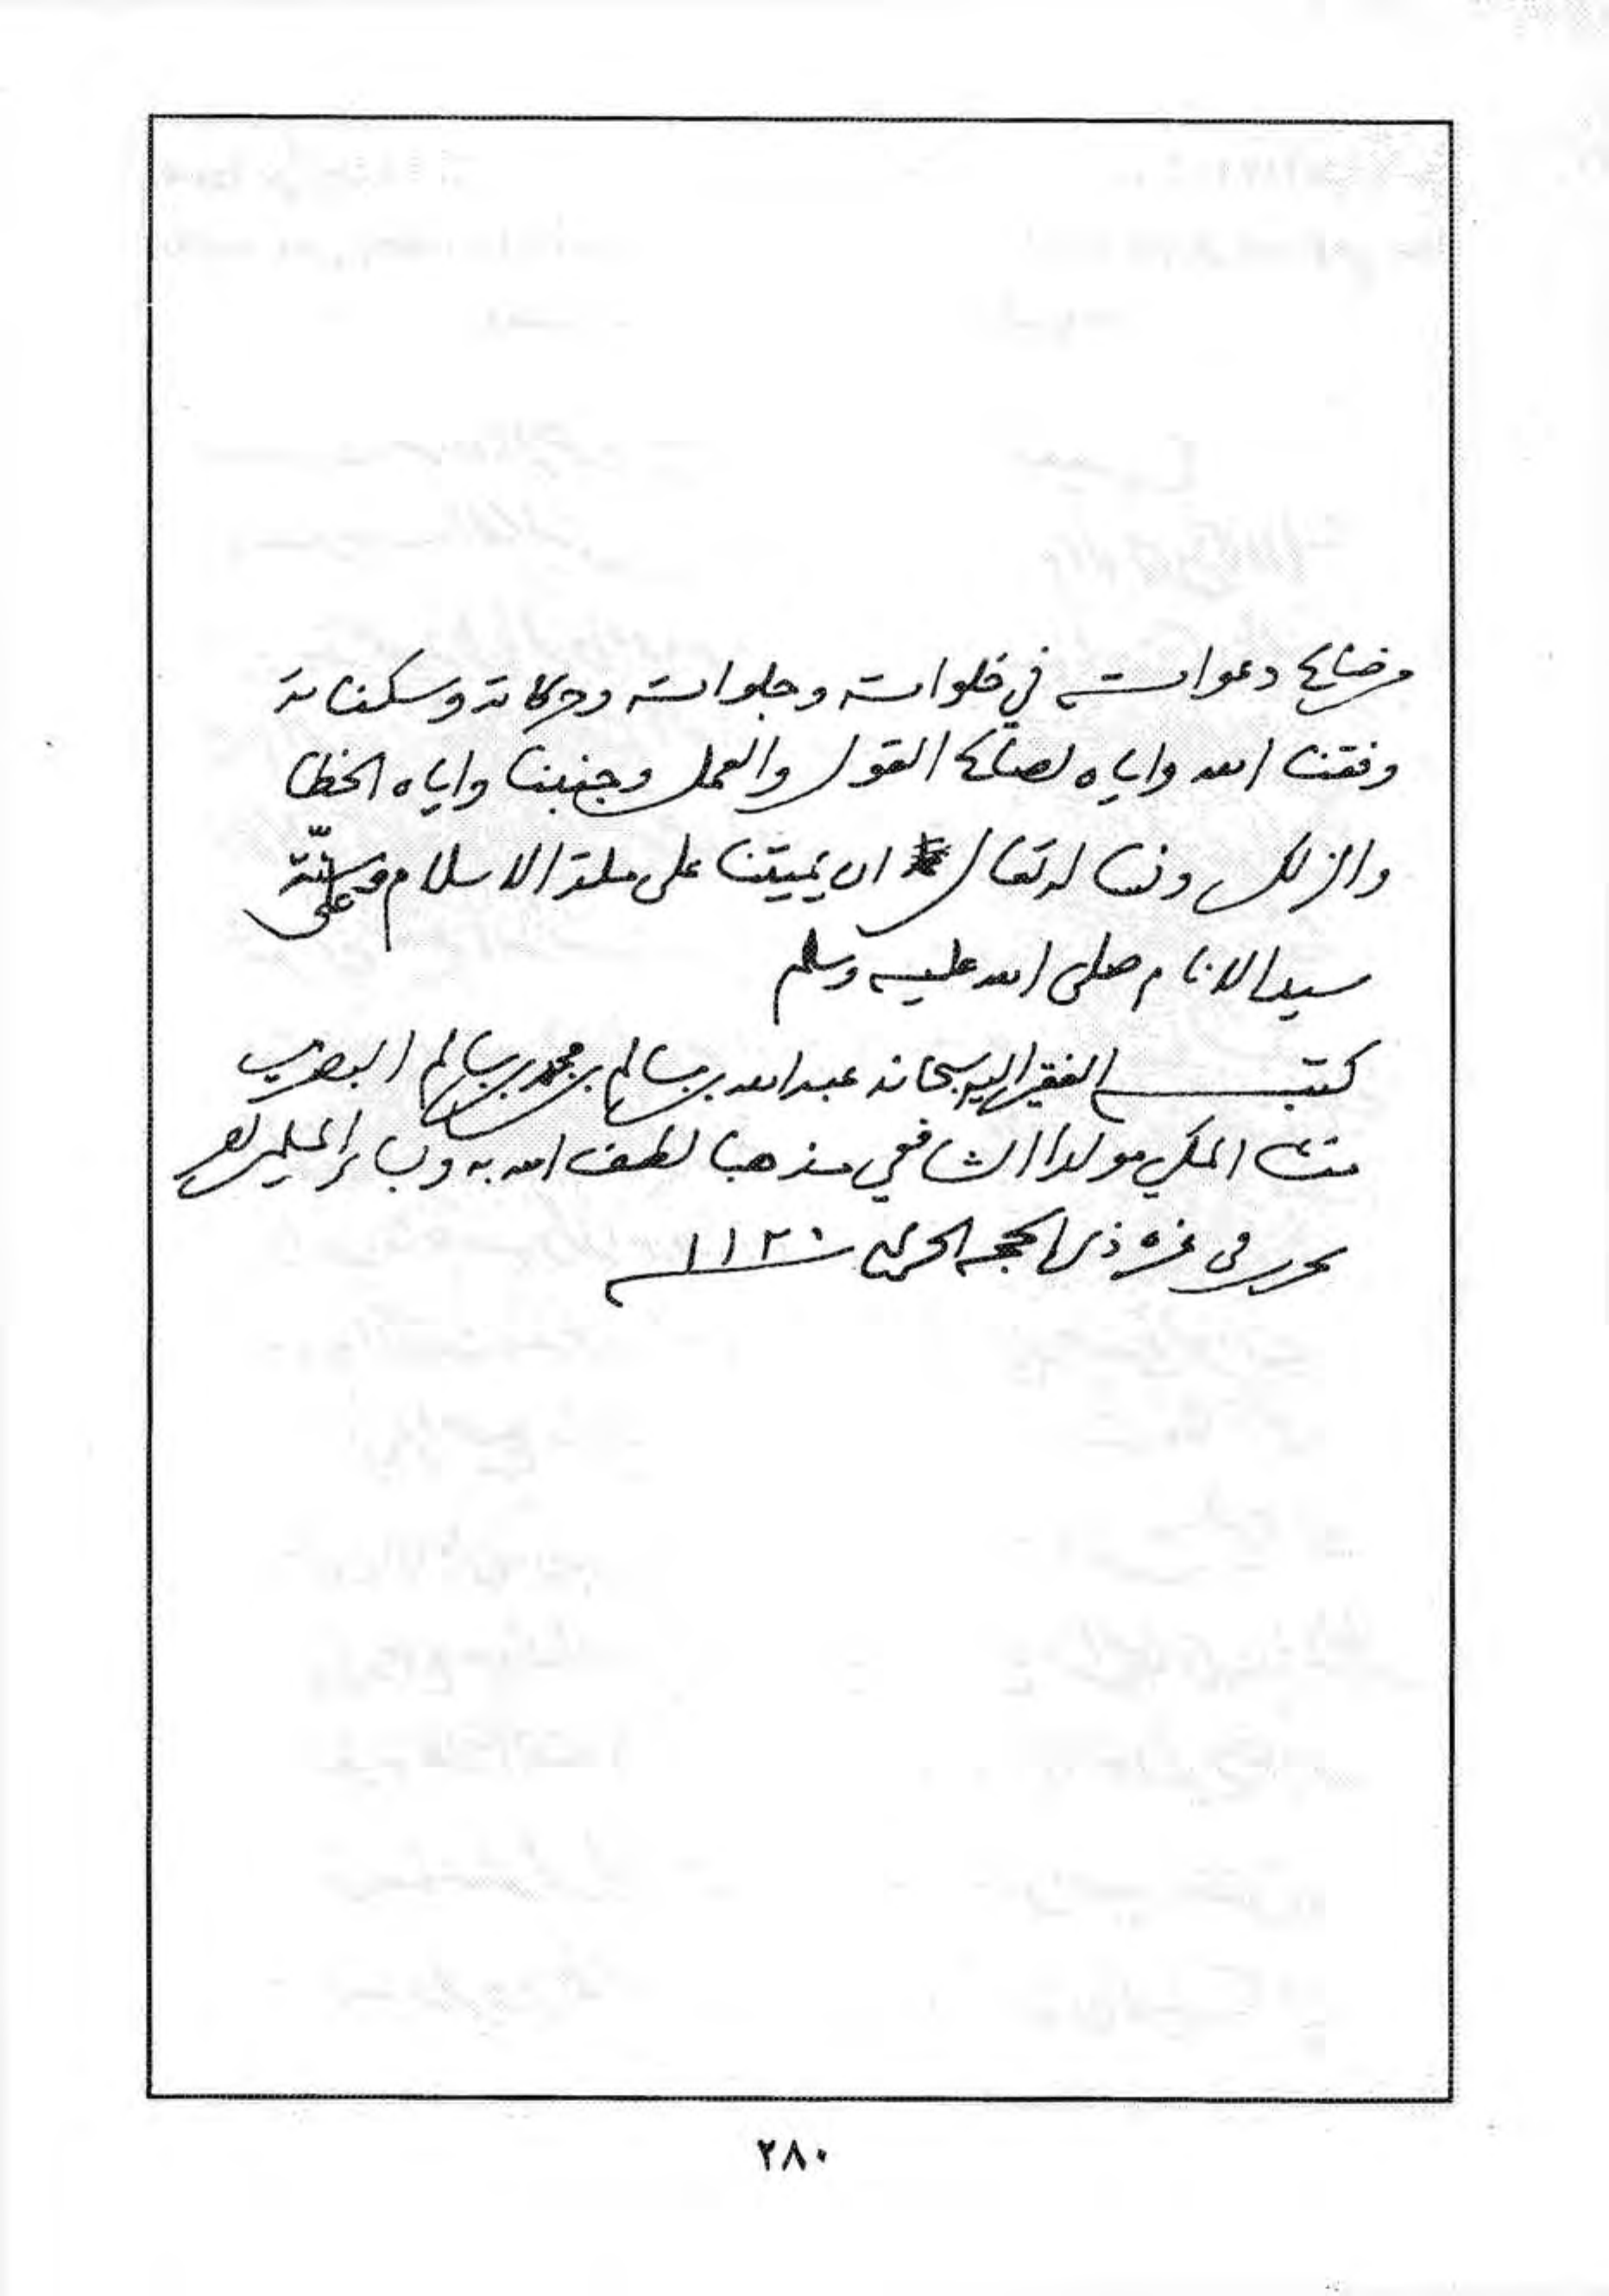 من صالح دعواته في خلواته وجلواته وحركاته وسكناته
وفقنا الله واياه لصالح القول والعمل وجنبنا واياه الخطا
والزلل ونساله تعالى ان يميتنا على ملة الاسلام وعلى سنّة
سيد الانام صلى الله عليه وسلم
كتبه الفقير اليه سبحانه عبدالله بن سالم بن محمد بن سالم البصري
منشا المكي مولدا الشافعي مذهبا لطف الله به وبسائر المسلمين
حرر في غرة ذي الحجة الحرام ١١٢٠
٢٨٠